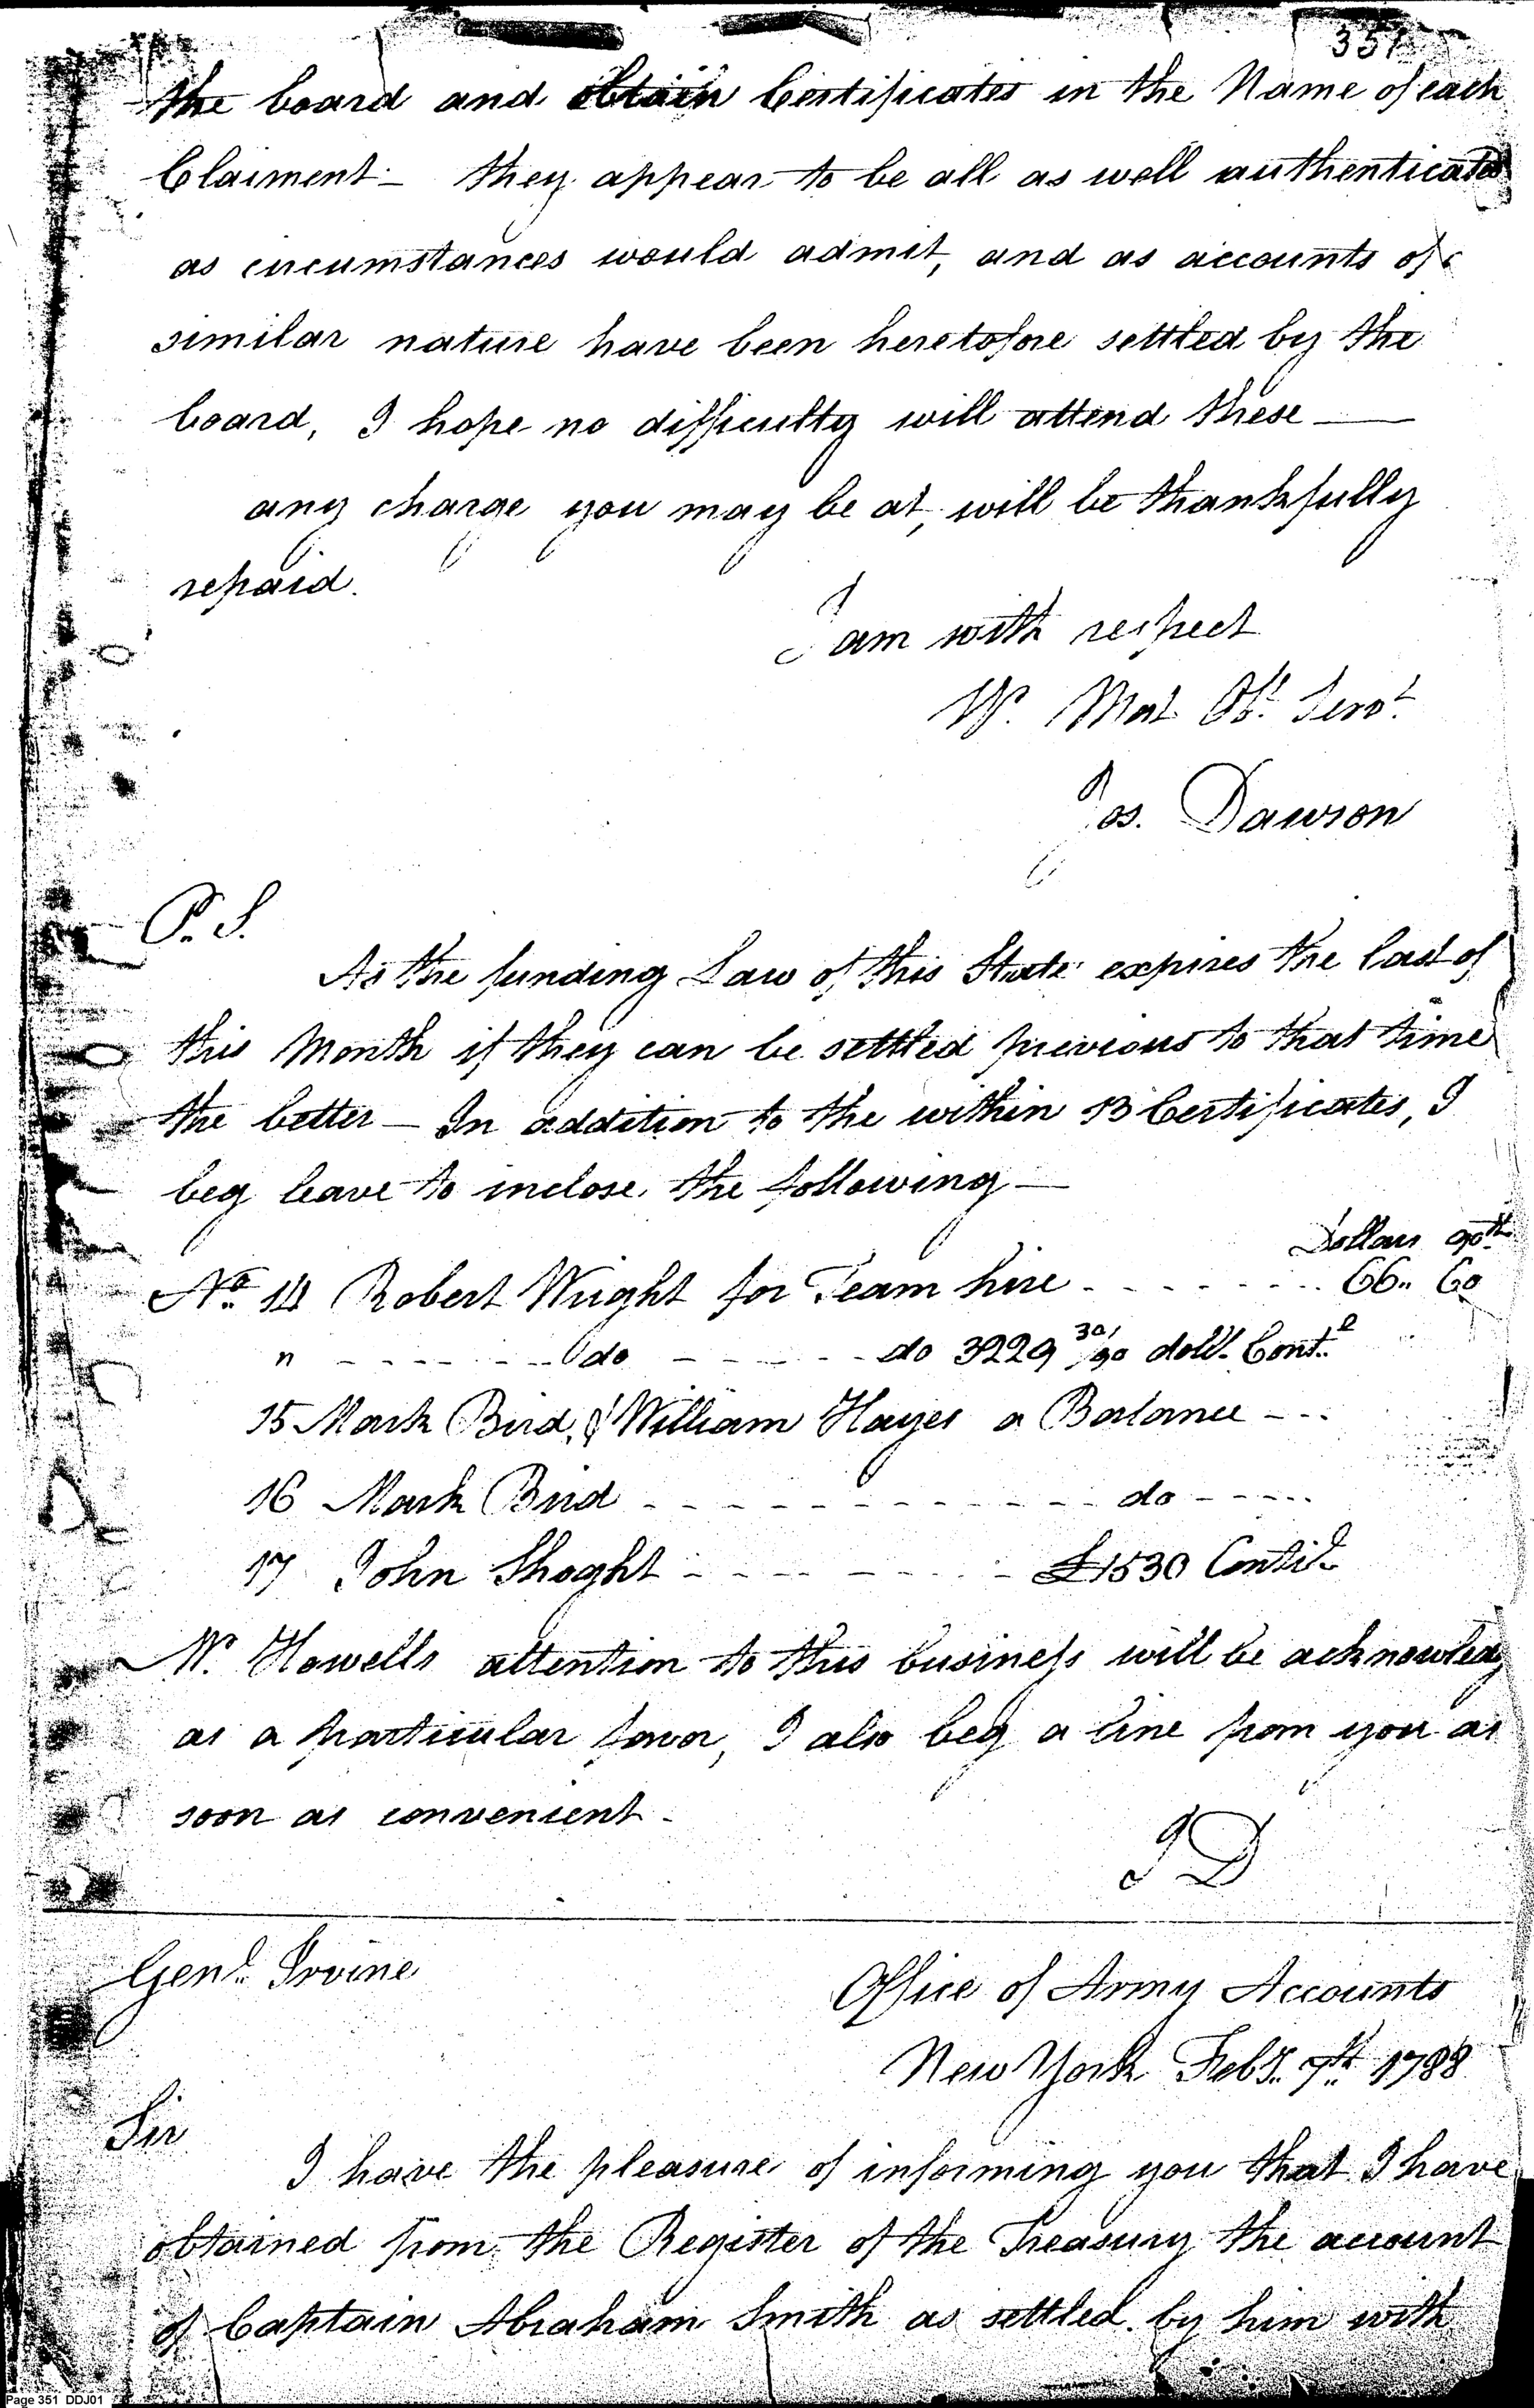 351
the board and obtain Certificates in the Name of each
Claiment - they appear to be all as well authenticated
as circumstances would admit, and as accounts of
similar nature have been heretofore settled by the
board, I hope no difficulty will attend these —
any charge you may be at, will be thankfully
repaid.
I am with respect
Yr. Most Obt. Servt.
Jos. Dawson
P. S.
As the funding Law of this State expires the last of
this Month if they can be settled previous to that time
the better — In addition to the within 13 Certificates, I
beg leave to inclose the following —
Dollars 90th
No. 14 Robert Wright for Team hire - - - - - - - 66.. 60
" - - - - - - - do - - - - - - do 3229 30/90 dolls. Contl.
15 Mark Bird, & William Hayes a Balance - - -
16 Mark Bird - - - - - - - - - - - - - do - - - - -
17 John Shoght - - - - - - - - - £1530 Contil.
Mr. Howells attention to this business will be acknowledg
as a particular favor, I also beg a line from you as
soon as convenient -
JD
Genl. Irvine
Office of Army Accounts
New York Feby. 7th 1788
Sir
I have the pleasure of informing you that I have
obtained from the Register of the Treasury the account
of Captain Abraham Smith as settled by him with
Page 351 DDJ01